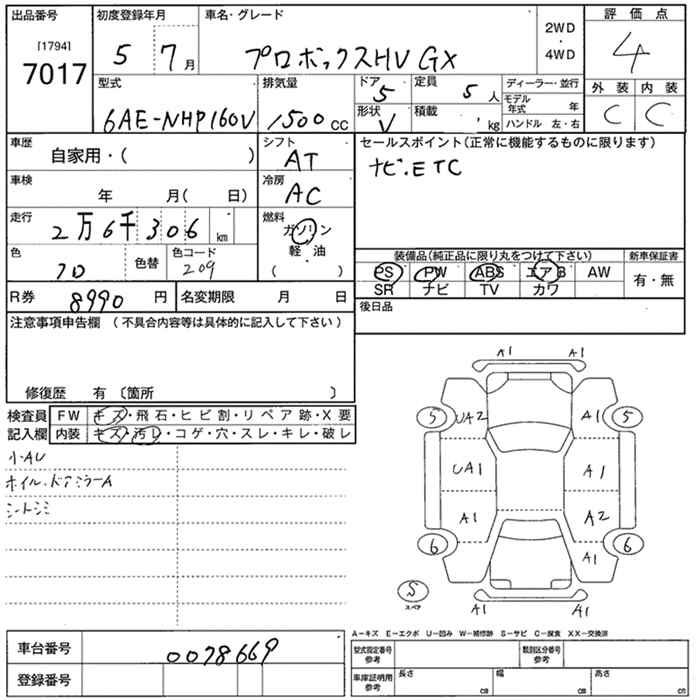 出品番号
[1794]
7017
初度登録年月
5 7月
車名・グレード
プロボックスHV GX
2WD
・
4WD
評価点
4
外装 内装
C C
型式
6AE-NHP160V
排気量
1500cc
ドア 5
形状 V
定員 5人
積載 kg
ディーラー・並行
モデル年式 年
ハンドル 左・右
車歴
自家用・( )
シフト
AT
セールスポイント(正常に機能するものに限ります)
ナビ.ETC
車検
年 月( 日)
冷房
AC
走行
2万6千306 km
燃料
ガソリン
軽・油
( )
色
色替
色コード
209
装備品(純正品に限り丸をつけて下さい)
PS PW ABS エアB AW
SR ナビ TV カワ
新車保証書
有・無
R券 8990円
名変期限 月 日
後日品
注意事項申告欄(不具合内容等は具体的に記入して下さい)
修復歴 有〔箇所 〕
検査員
記入欄
FW キズ・飛石・ヒビ割・リペア跡・X要
内装 キズ・汚レ・コゲ・穴・スレ・キレ・破レ
小AU
ホイル.ドアミラーA
シートシミ
A1 A1
5 UA2 A1 5
UA1 A1
A1 A2
6 A1 6
S
スペア
A1 A1
A-キズ E-エクボ U-凹み W-補修跡 S-サビ C-腐食 XX-交換済
車台番号
0078669
登録番号
型式指定番号
参考
類別区分番号
参考
車庫証明用
参考
長さ cm
幅 cm
高さ cm